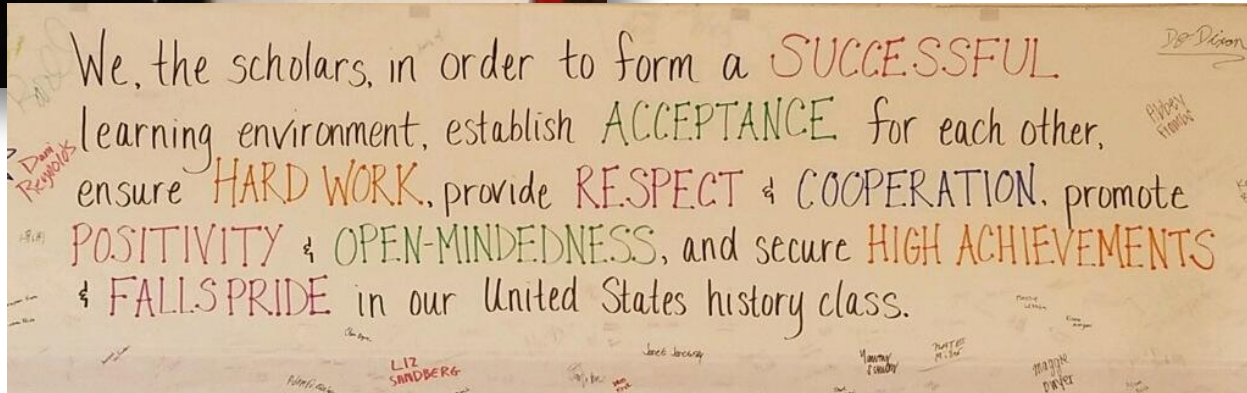 We, the scholars, in order to form a SUCCESSFUL
learning environment, establish ACCEPTANCE for each other,
ensure HARD WORK, provide RESPECT & COOPERATION, promote
POSITIVITY & OPEN-MINDEDNESS, and secure HIGH ACHIEVEMENTS
& FALLS PRIDE in our United States history class.
Dani
Reynolds
LIZ
SANDBERG
maggie
Dwyer